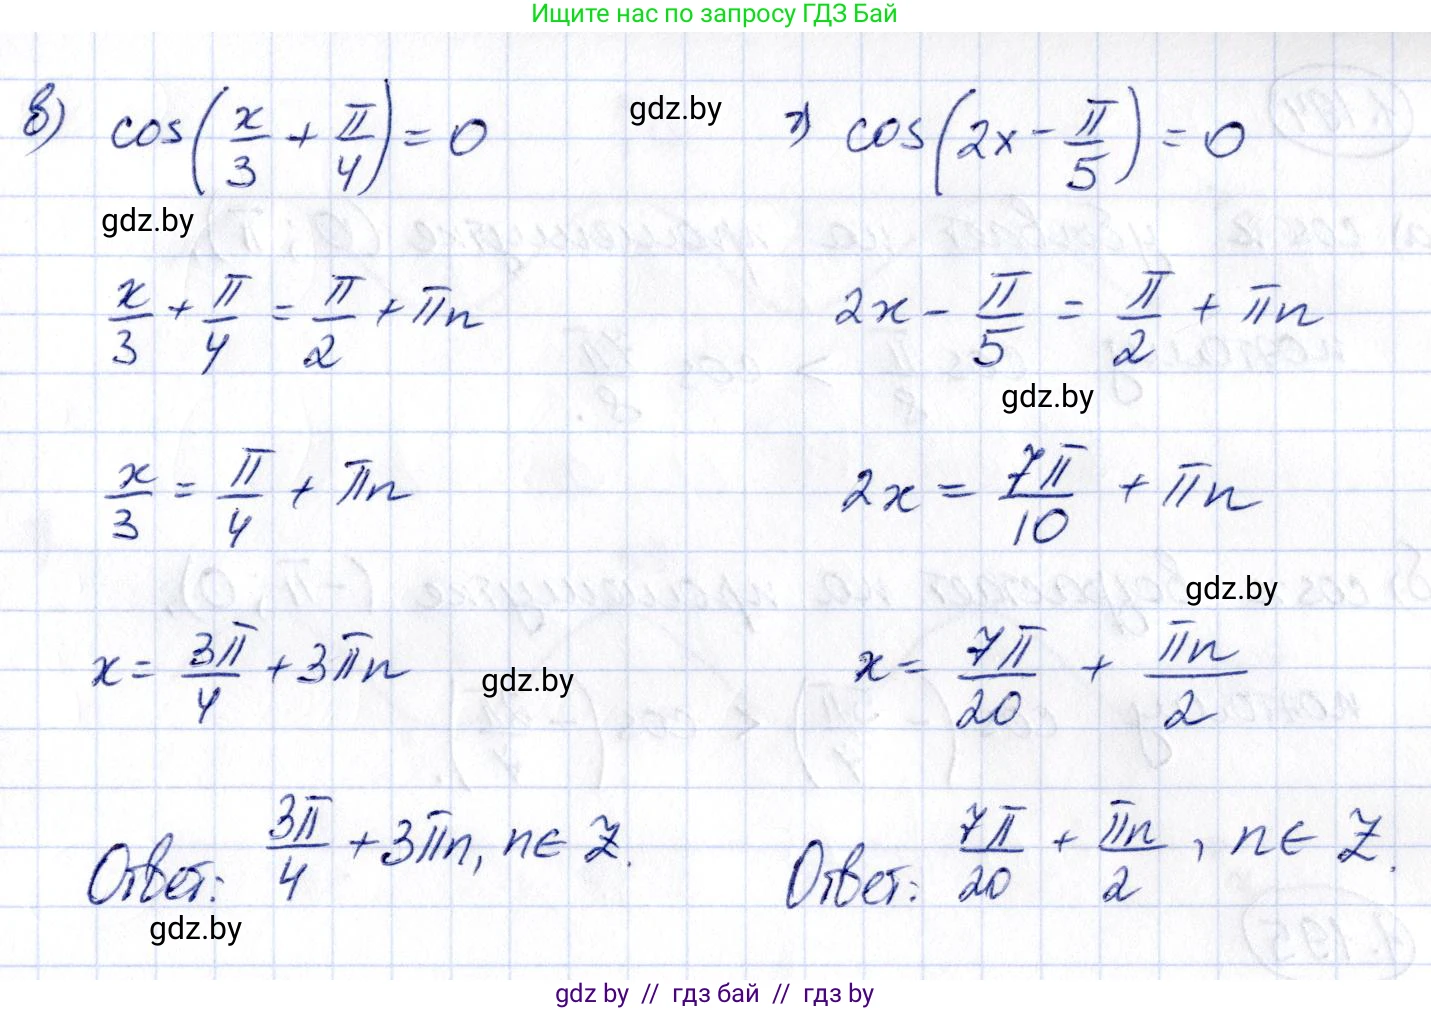 Ищите нас по запросу ГДЗ Бай
в) cos(x/3 + π/4) = 0
gdz.by
г) cos(2x - π/5) = 0
gdz.by
x/3 + π/4 = π/2 + πn
2x - π/5 = π/2 + πn
gdz.by
x/3 = π/4 + πn
2x = 7π/10 + πn
gdz.by
x = 3π/4 + 3πn
gdz.by
x = 7π/20 + πn/2
Ответ: 3π/4 + 3πn, n ∈ Z.
Ответ: 7π/20 + πn/2, n ∈ Z.
gdz.by
gdz by // гдз бай // гдз by